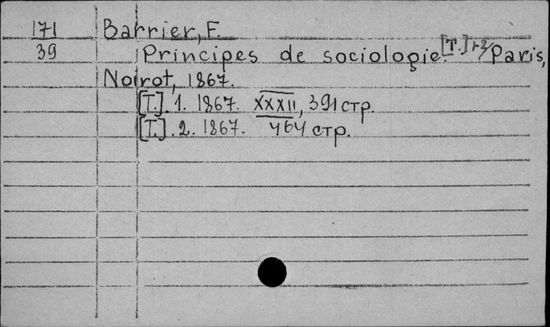 171 Barrier, F.
39 Principes de sociologie. [T.] 1-2/ Paris,
Noirot, 1867.
[T.]. 1. 1867. XXXII, 391 стр.
[T.]. 2. 1867. 464 стр.